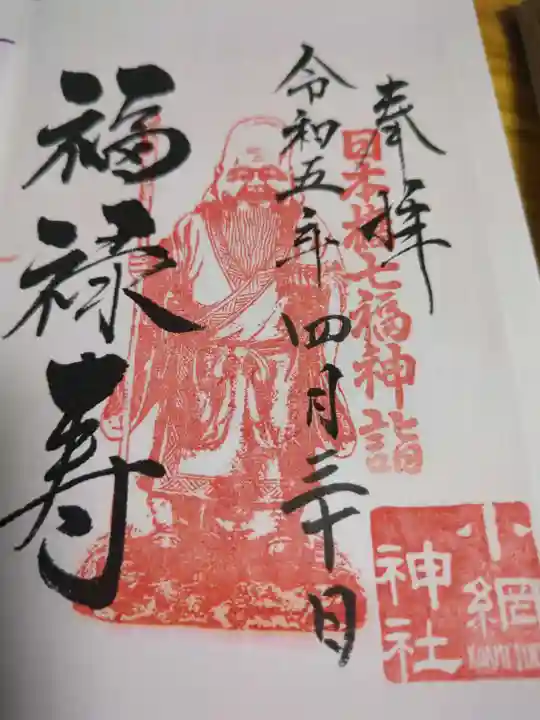 奉拝
日本橋七福神詣
令和五年四月三十日
福禄寿
小網
神社